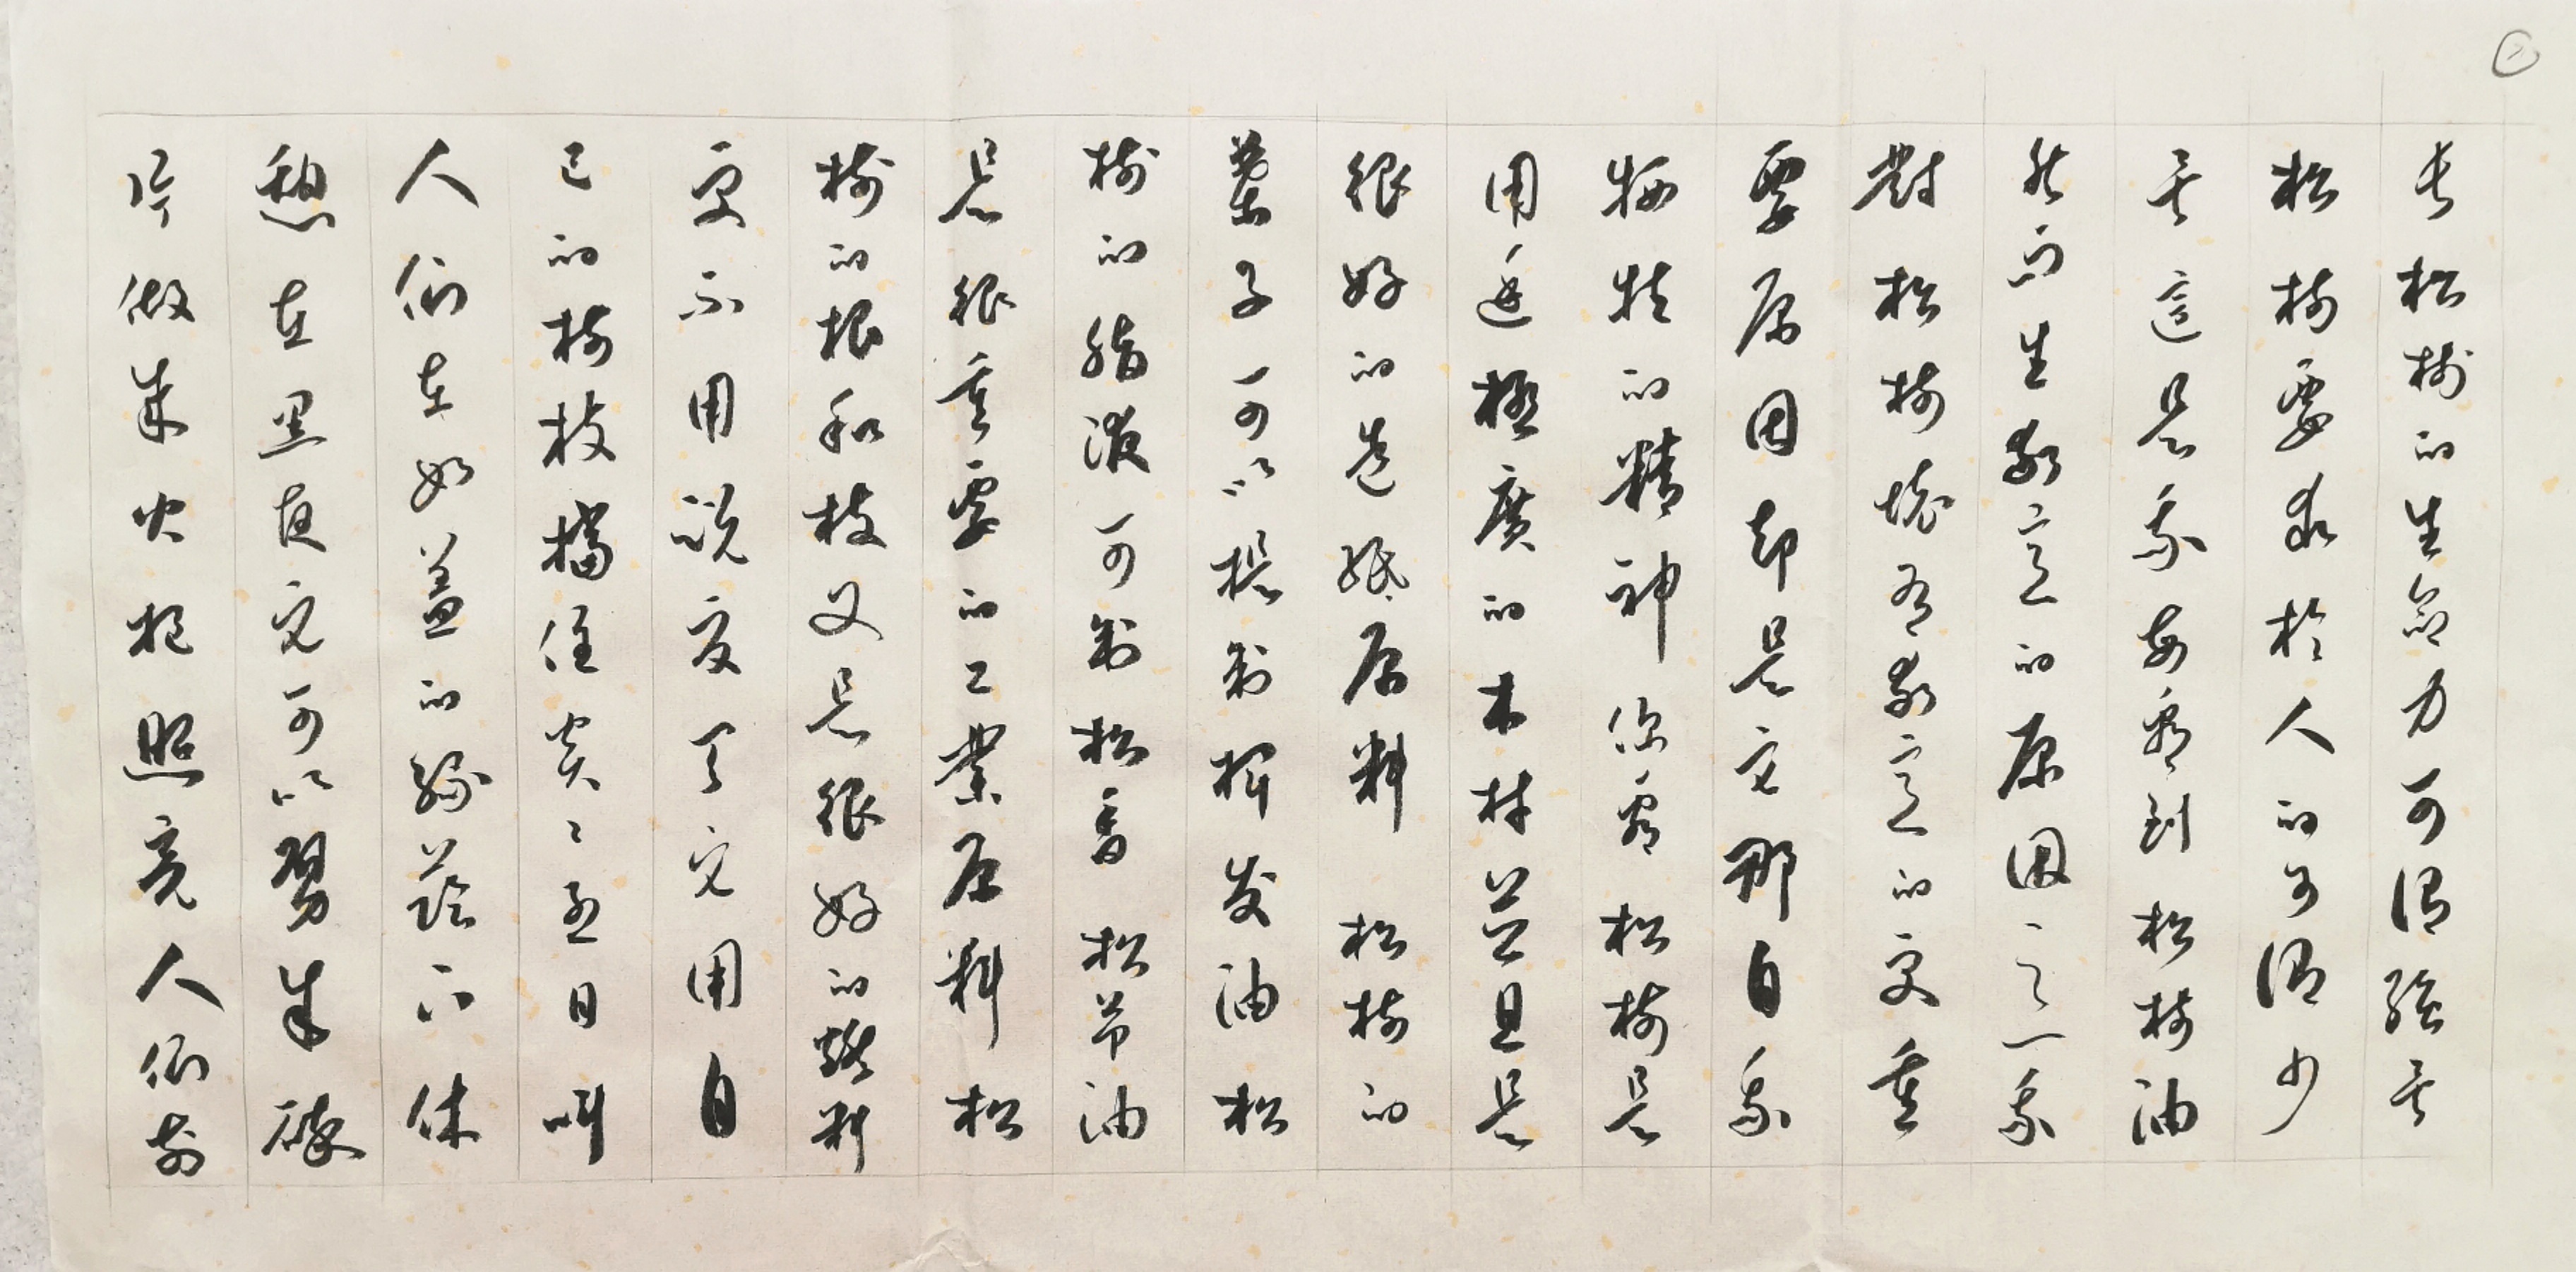 ②
长松树的生命力可谓强矣
松树要求於人的可谓少
矣這是我每看到松树油
然而生敬意的原因之一我
對松树怀有敬意的更重
要原因却是它那自我
牺牲的精神你看松树是
用途極廣的木材並且是
很好的造纸原料松树的
葉子可以提制揮发油松
树的脂液可制松香松节油
是很重要的工業原料松
树的根和枝又是很好的燃料
更不用说夏天它用自
己的树枝擋住炎〻烈日叫
人们在如盖的绿荫下休
憩在黑夜它可以劈成碎
片做成火把照亮人们前